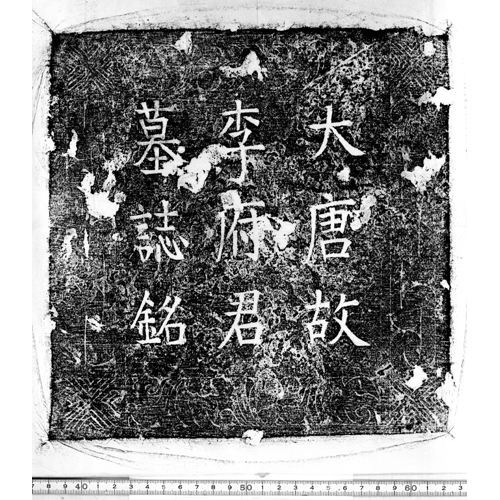 大唐故
李府君
墓誌銘
8 9 40 1 2 3 4 5 6 7 8 9 50 1 2 3 4 5 6 7 8 9 60 1 2 3